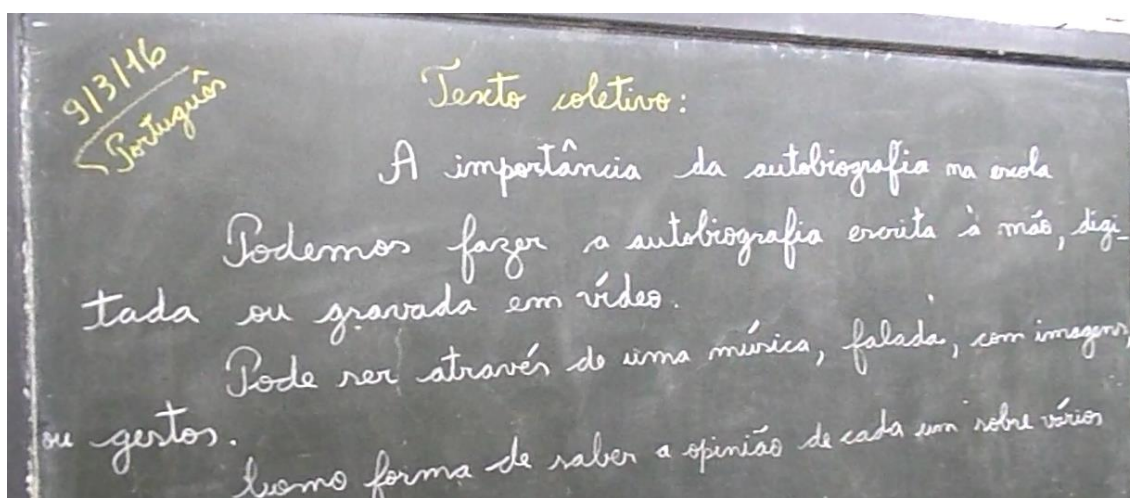 9/3/16
Português
Texto coletivo:
A importância da autobiografia na escola
Podemos fazer a autobiografia escrita à mão, digi-
tada ou gravada em vídeo.
Pode ser através de uma música, falada, com imagens,
ou gestos.
Como forma de saber a opinião de cada um sobre vários